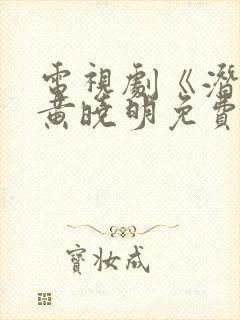 電視劇《潛
黃曉明免費
寶妝成